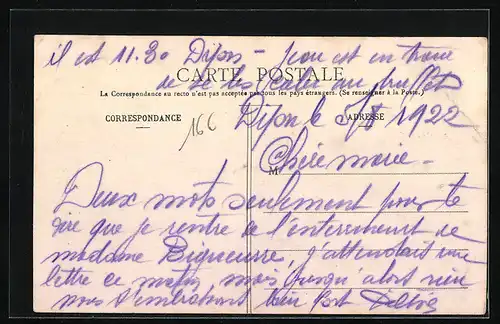 il est 11.30 Dijon – Jean est en train
de se
CARTE POSTALE
La Correspondance au recto n'est pas acceptée par tous les pays étrangers. (Se renseigner à la Poste.)
CORRESPONDANCE
ADRESSE
166
Dijon le 1922
M
Chère marie –
Deux mots seulement pour te
dire que je rentre de l'enterrement de
madame Bigueurre, j'attendais une
lettre ce matin mais jusqu'alors rien
nous t'embrassons bien fort